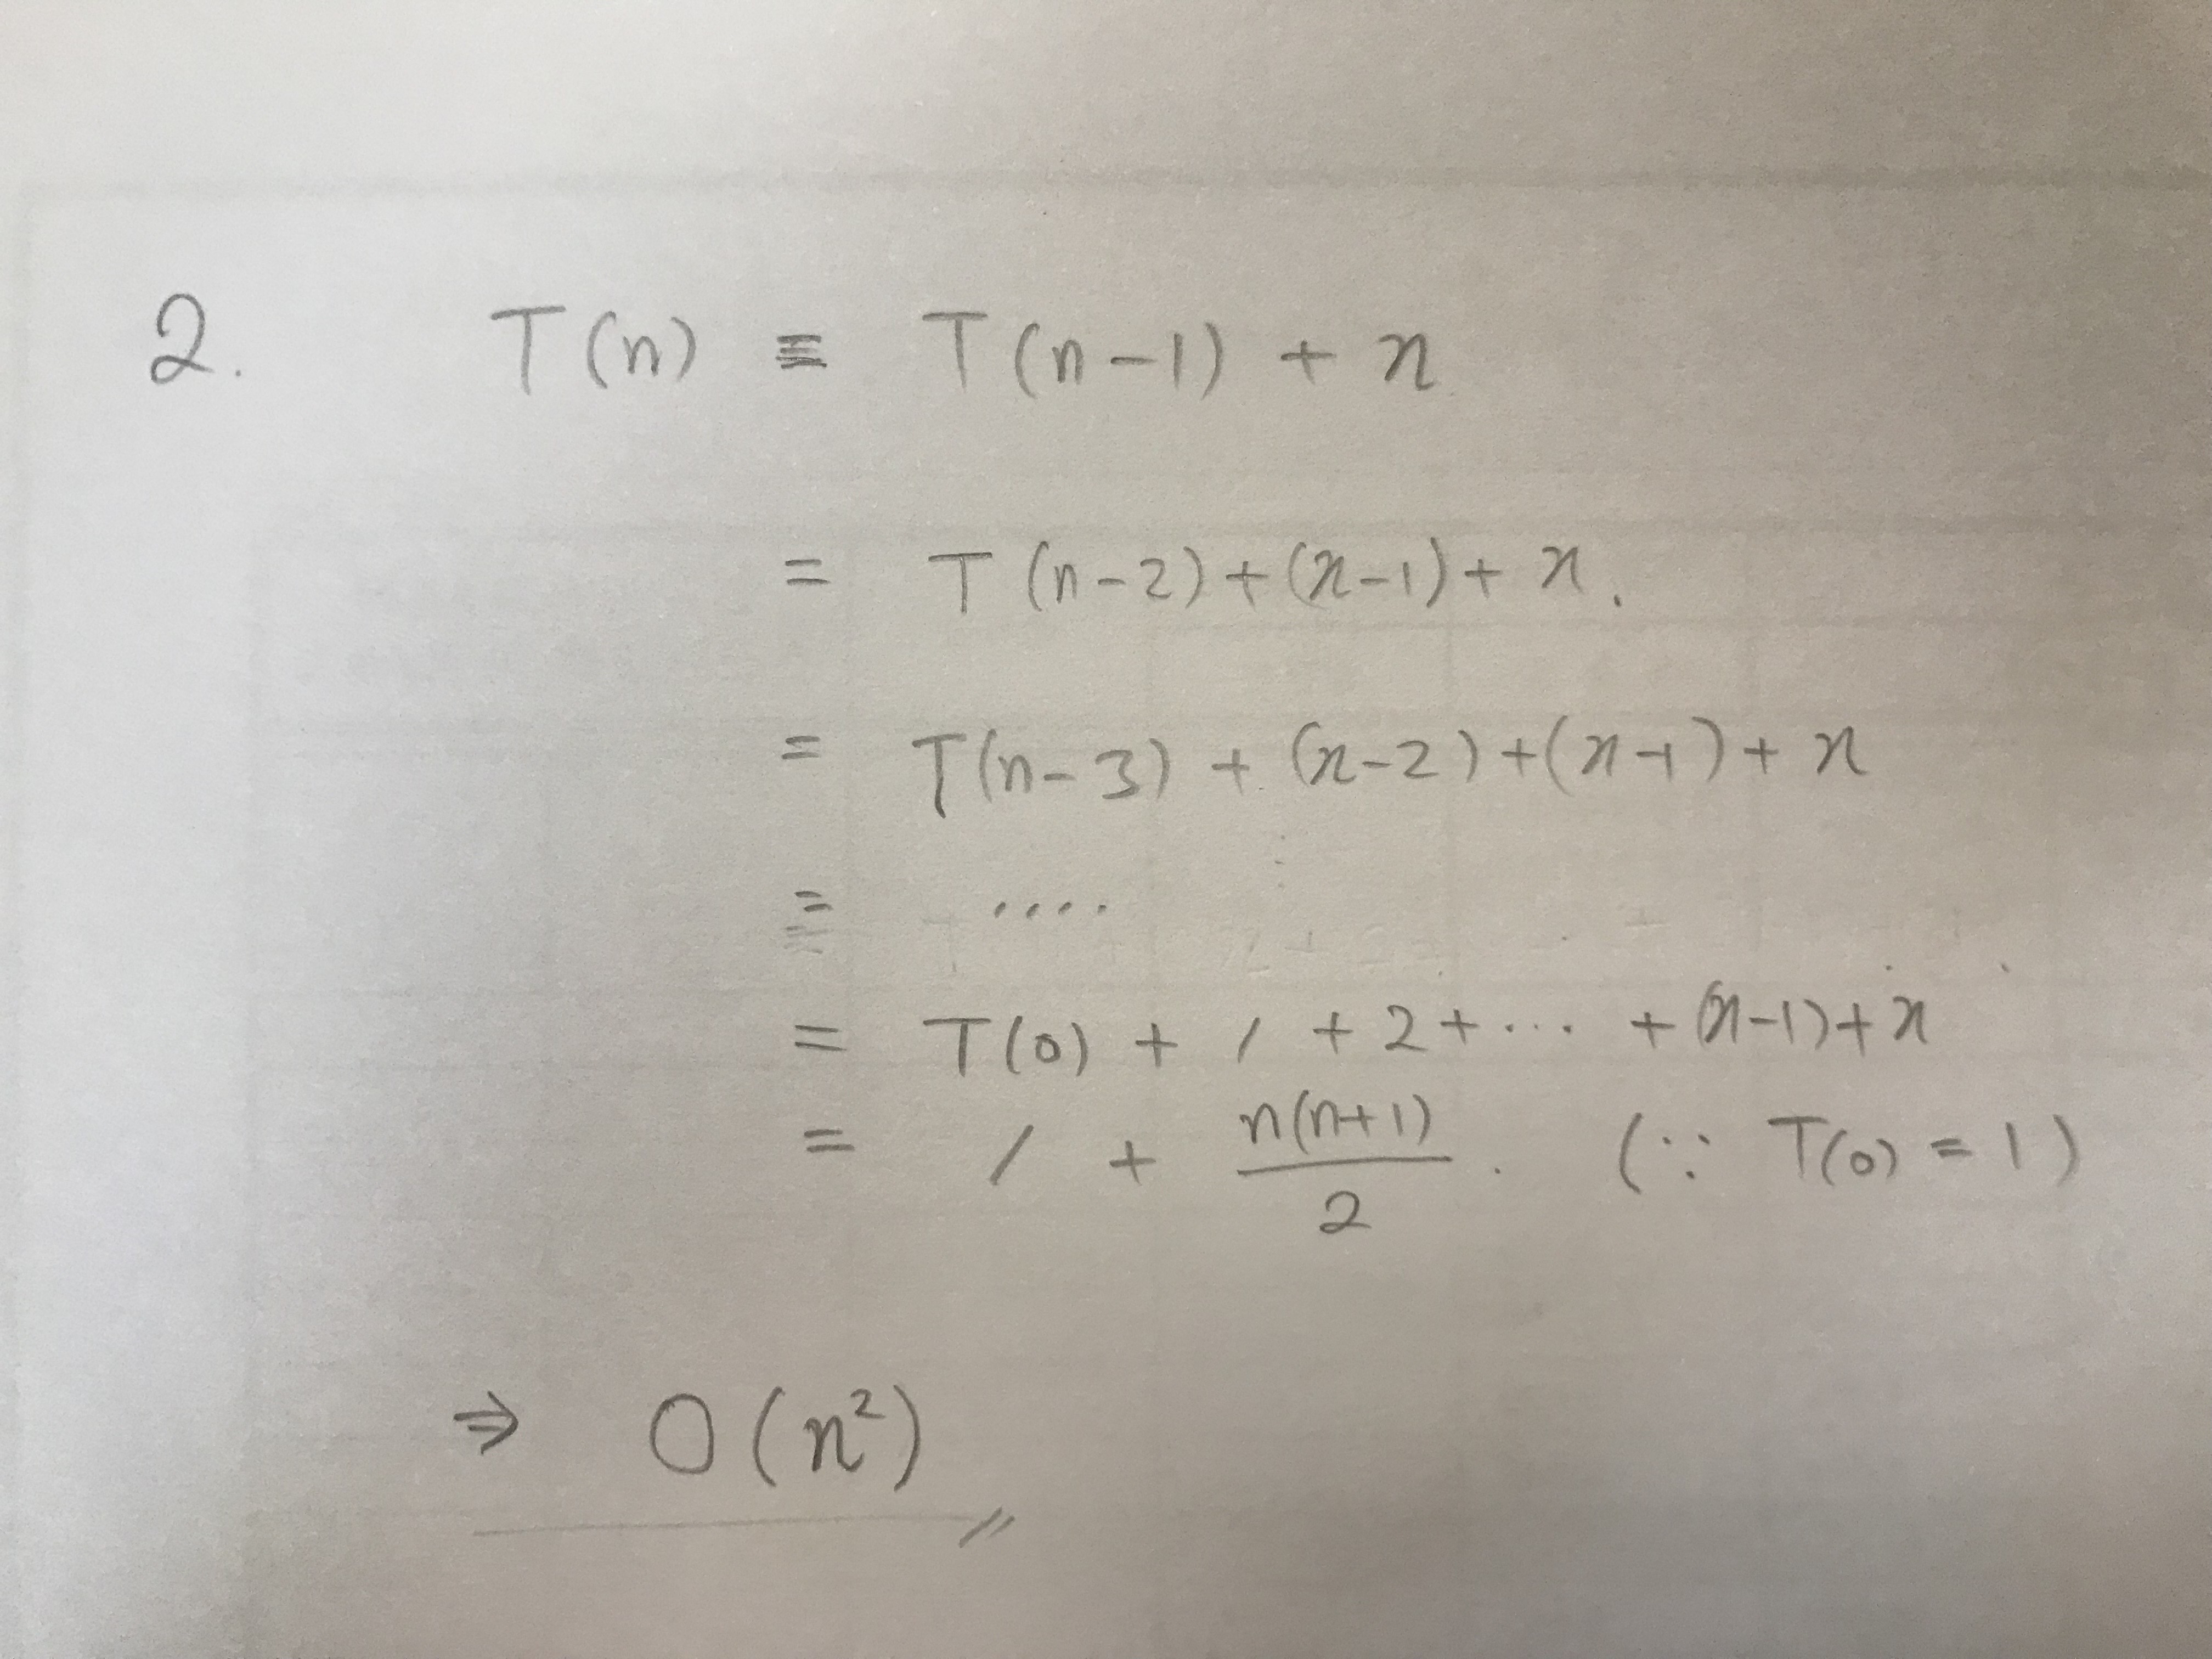 2. T(n) = T(n-1) + n
= T(n-2) + (n-1) + n.
= T(n-3) + (n-2) + (n-1) + n
= ....
= T(0) + 1 + 2 + ... + (n-1) + n
= 1 + n(n+1)/2. (∵ T(0) = 1)
⇒ O(n²)